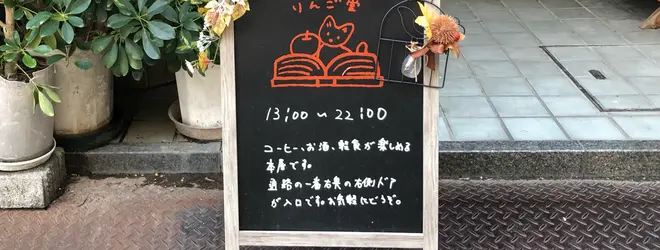 りんご堂
13:00〜22:00
コーヒー、お酒、軽食が楽しめる
本屋です。
通路の一番右奥の右側ドア
が入口です。お気軽にどうぞ。